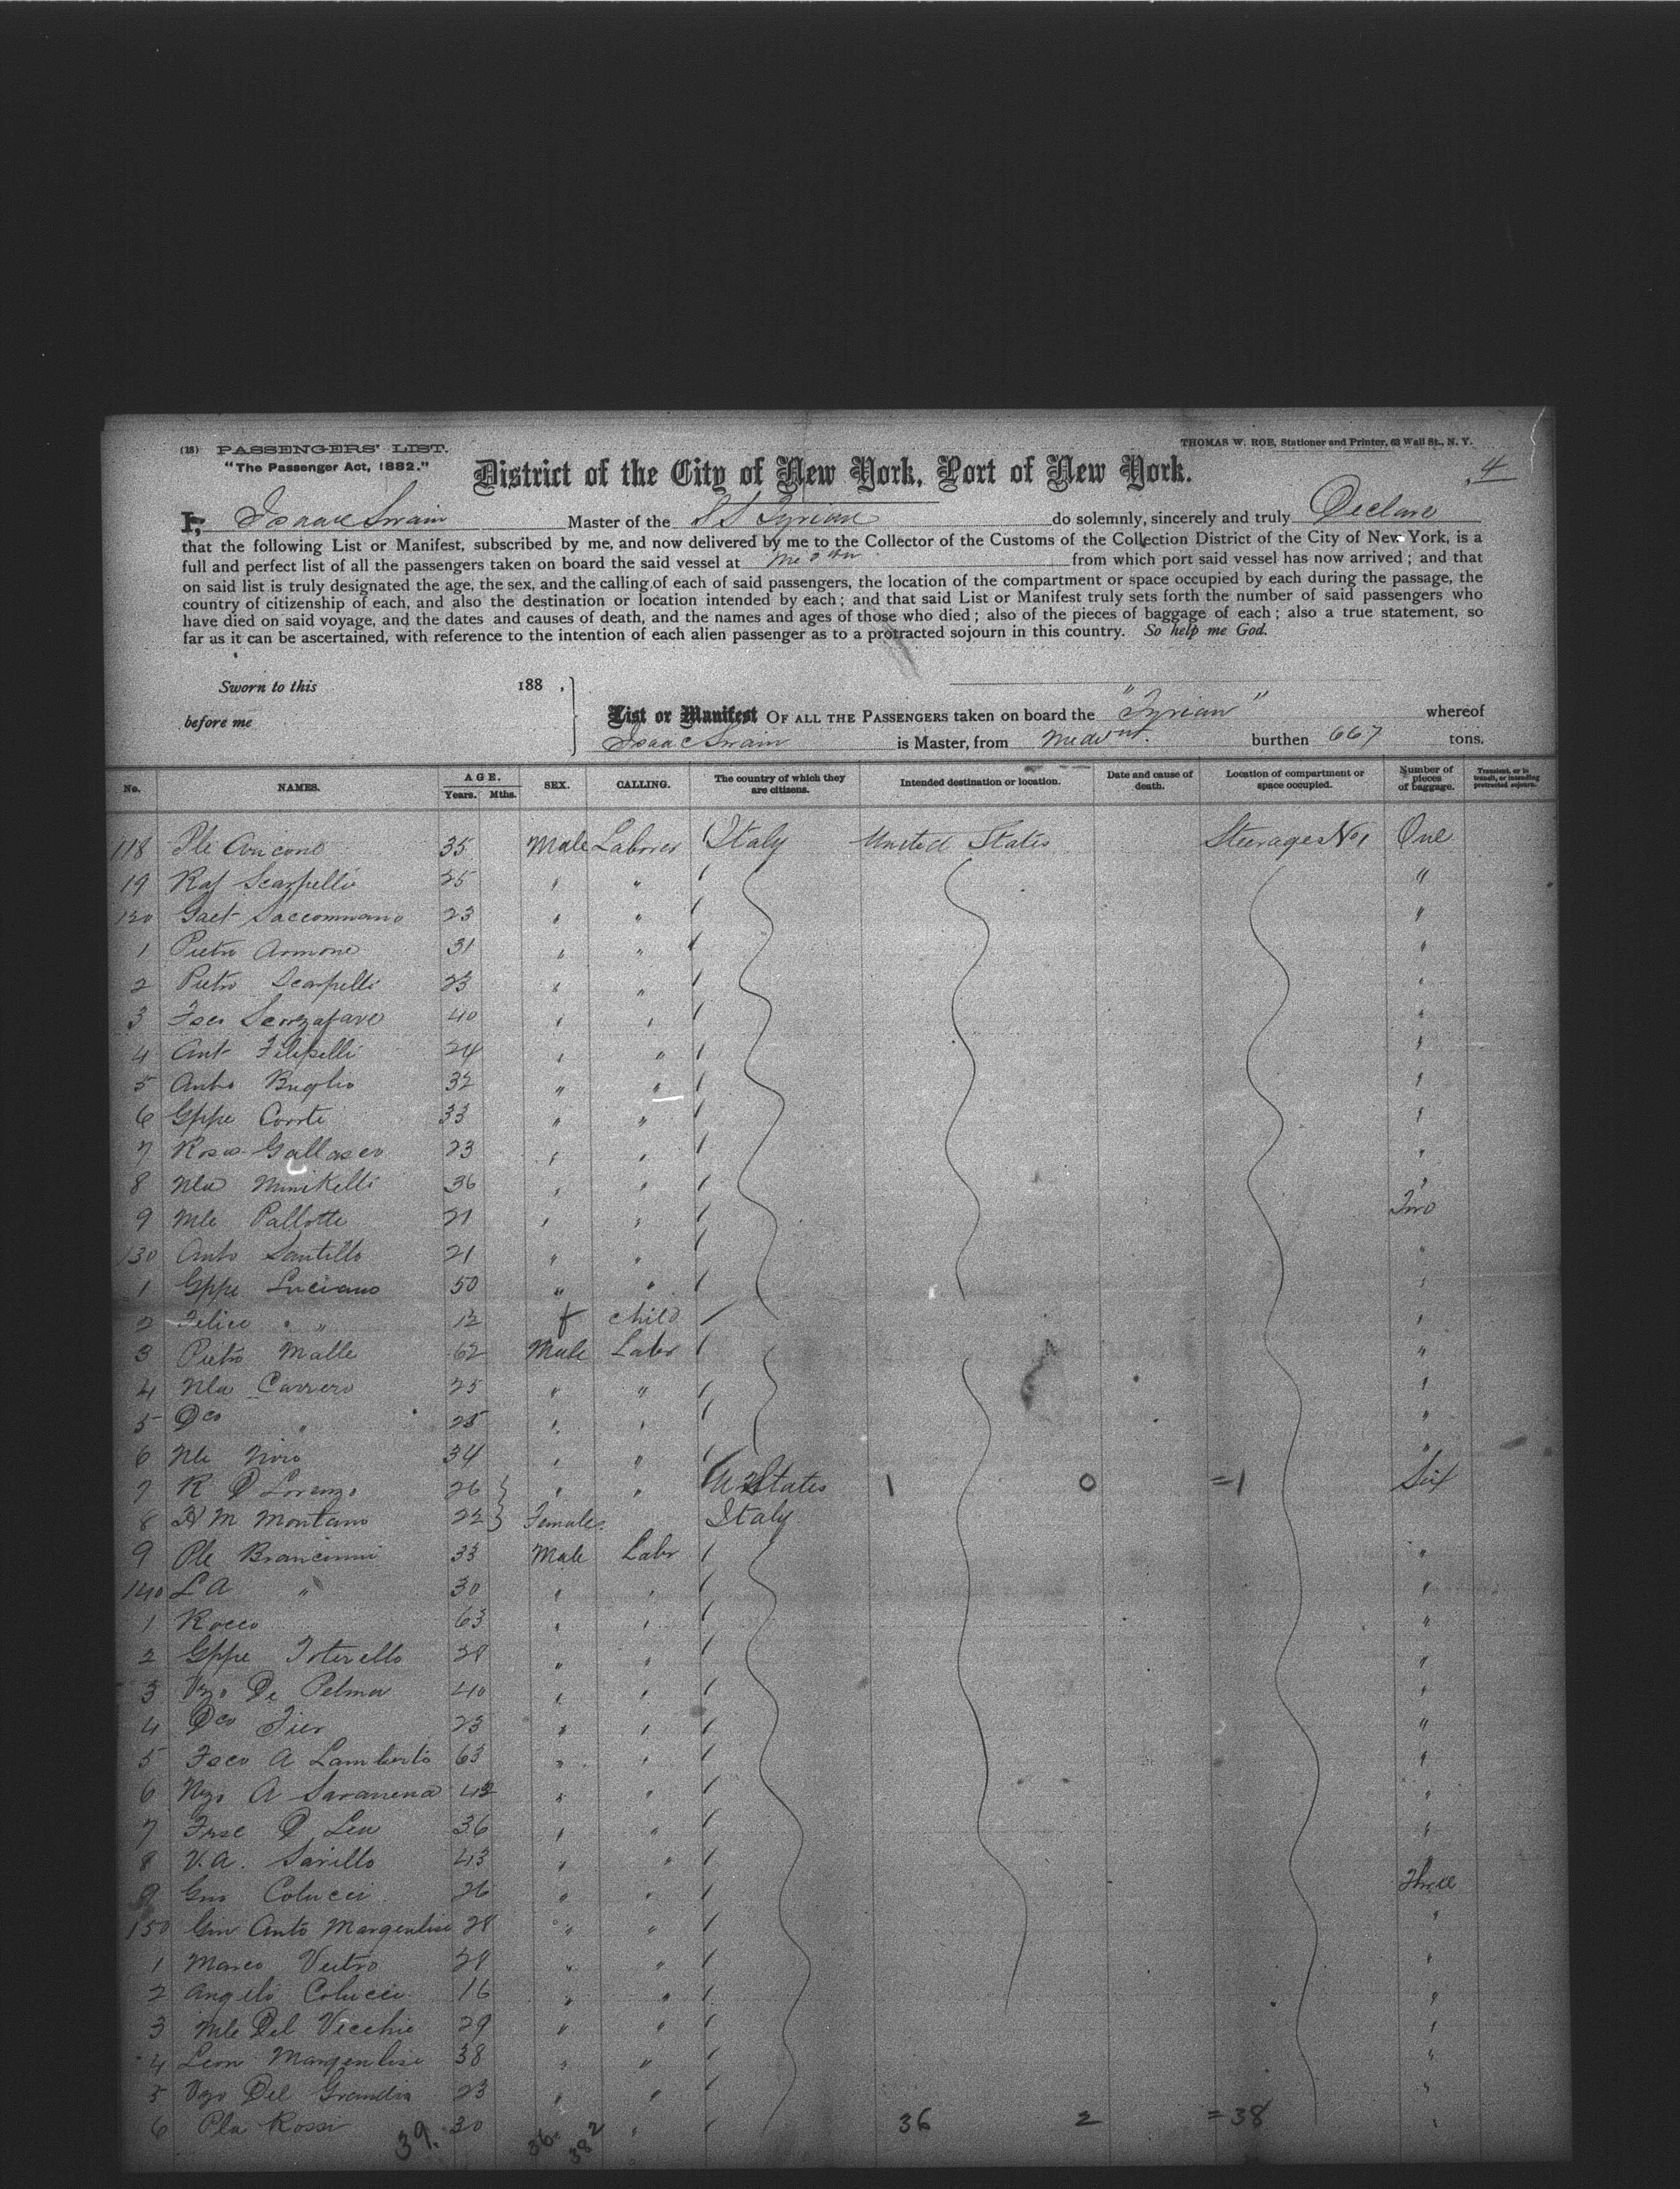 (18) PASSENGERS' LIST.
THOMAS W. ROE, Stationer and Printer, 63 Wall St., N. Y.
"The Passenger Act, 1882."
District of the City of New York, Port of New York.
4
I, Isaac Swain Master of the SS Tyrian do solemnly, sincerely and truly Declare
that the following List or Manifest, subscribed by me, and now delivered by me to the Collector of the Customs of the Collection District of the City of New York, is a
full and perfect list of all the passengers taken on board the said vessel at from which port said vessel has now arrived; and that
on said list is truly designated the age, the sex, and the calling of each of said passengers, the location of the compartment or space occupied by each during the passage, the
country of citizenship of each, and also the destination or location intended by each; and that said List or Manifest truly sets forth the number of said passengers who
have died on said voyage, and the dates and causes of death, and the names and ages of those who died; also of the pieces of baggage of each; also a true statement, so
far as it can be ascertained, with reference to the intention of each alien passenger as to a protracted sojourn in this country. So help me God.
Sworn to this 188 ,
before me
List or Manifest OF ALL THE PASSENGERS taken on board the "Tyrian" whereof
Isaac Swain is Master, from burthen 667 tons.
No. NAMES. AGE. Years. Mths. SEX. CALLING. The country of which they are citizens. Intended destination or location. Date and cause of death. Location of compartment or space occupied. Number of pieces of baggage. Transient, or in transit, or intending protracted sojourn.
118 Ple Ancono 35 Male Laborer Italy United States Steerage No 1 One
19 Raf Scarpelli 25 " " "
120 Gaet Saccomnano 23 " " "
1 Pietro Armone 31 " " "
2 Pietro Scarpelli 23 " " "
3 Fsco 40 " " "
4 Ant Filipelli 24 " " "
5 Anto Buglio 32 " " "
6 Gppe Conte 33 " " "
7 Rosa Gallasco 23 " " "
8 Nla Minikelli 36 " " "
9 Mle Pallotte 21 " " Two
130 Anto Santillo 21 " " "
1 Gppe Luciano 50 " " "
2 Felice " " 12 f child "
3 Pietro Malle 62 Male Labr "
4 Nla Carrero 25 " " "
5 Dco " 25 " " "
6 Nle 34 " " "
7 R D Lorenzo 26 " " U States 1 0 =1 Six
8 M Montano 22 Female Italy
9 Ple Brancinni 33 Male Labr "
140 L A " 30 " " "
1 Rocco 63 " " "
2 Gppe Totevello 28 " " "
3 Vzo De Pelma 40 " " "
4 Dco Fier 23 " " "
5 Fsco A Lamberto 63 " " "
6 A Saranena " " "
7 D Leo 36 " " "
8 V. A. Sarillo 43 " " "
9 Gno Colucci 26 " " Three
150 Gio Anto Margentise 28 " " "
1 Marco Vutro 28 " " "
2 Angelo Colucci 16 " " "
3 Mle Del Vecchio 29 " " "
4 Leon Margentise 38 " " "
5 Vzo Del Grandis 23 " " "
6 Pla Rossi 30 " " 36 2 =38 "
39. 36. 2
38